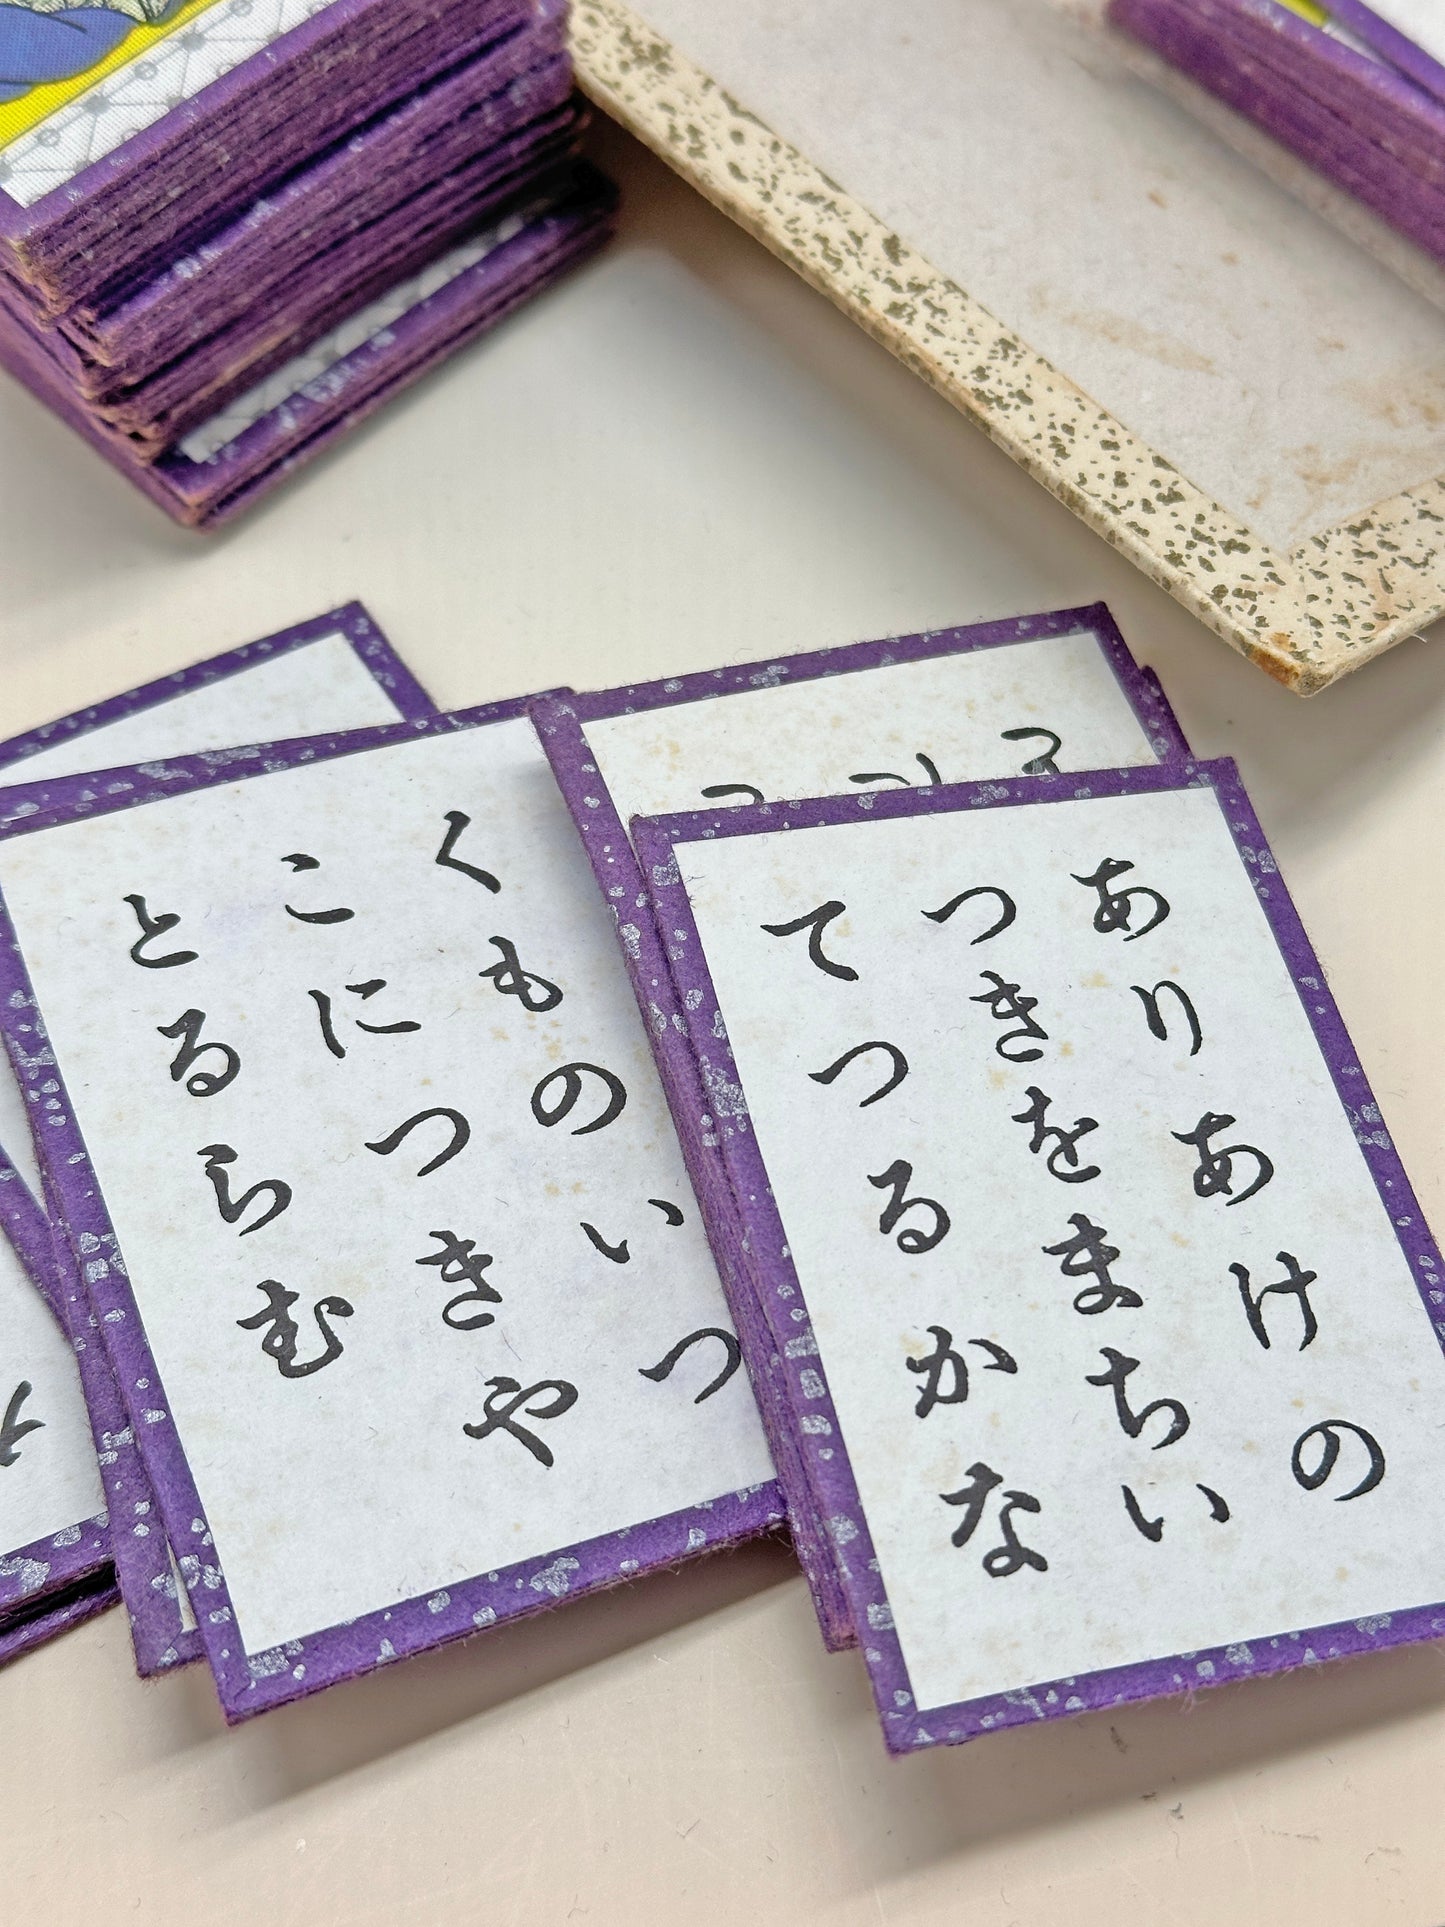 ありあけの
つきをまちい
てつるかな
くものいつ
こにつきや
とるらむ